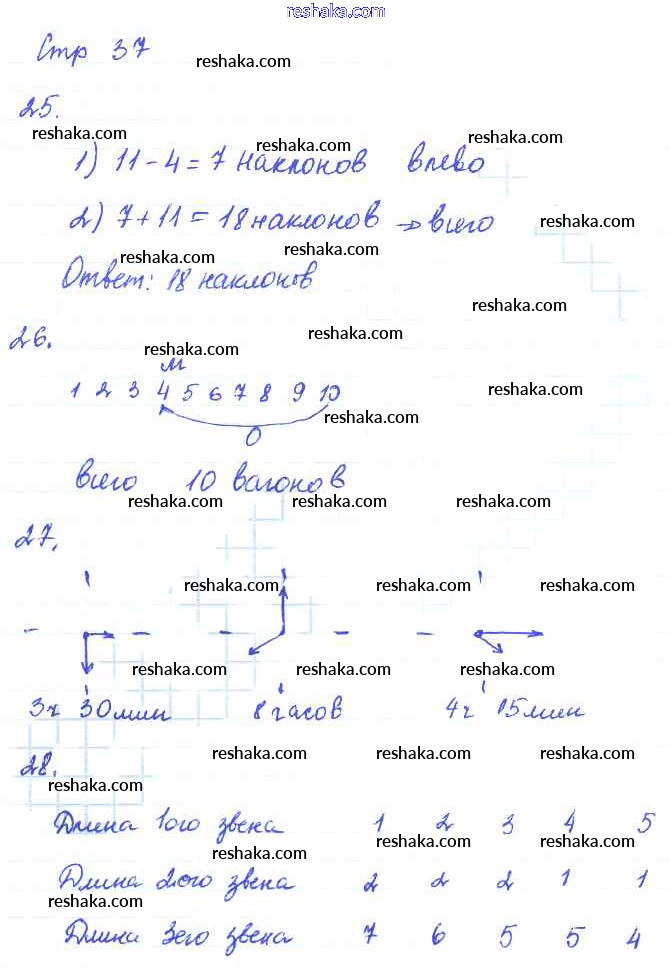 reshaka.com
Стр 37
reshaka.com
25.
reshaka.com reshaka.com reshaka.com
1) 11 - 4 = 7 наклонов влево
2) 7 + 11 = 18 наклонов → всего
reshaka.com
reshaka.com reshaka.com
Ответ: 18 наклонов
reshaka.com
26.
reshaka.com
reshaka.com
М
reshaka.com
1 2 3 4 5 6 7 8 9 10
reshaka.com
0
всего 10 вагонов
reshaka.com reshaka.com reshaka.com
27.
reshaka.com reshaka.com reshaka.com
reshaka.com reshaka.com reshaka.com
3ч 30мин 8 часов 4ч 15мин
reshaka.com reshaka.com
28.
reshaka.com
Длина 1ого звена 1 2 3 4 5
reshaka.com reshaka.com reshaka.com
Длина 2ого звена 2 2 2 1 1
reshaka.com reshaka.com reshaka.com
Длина 3его звена 7 6 5 5 4